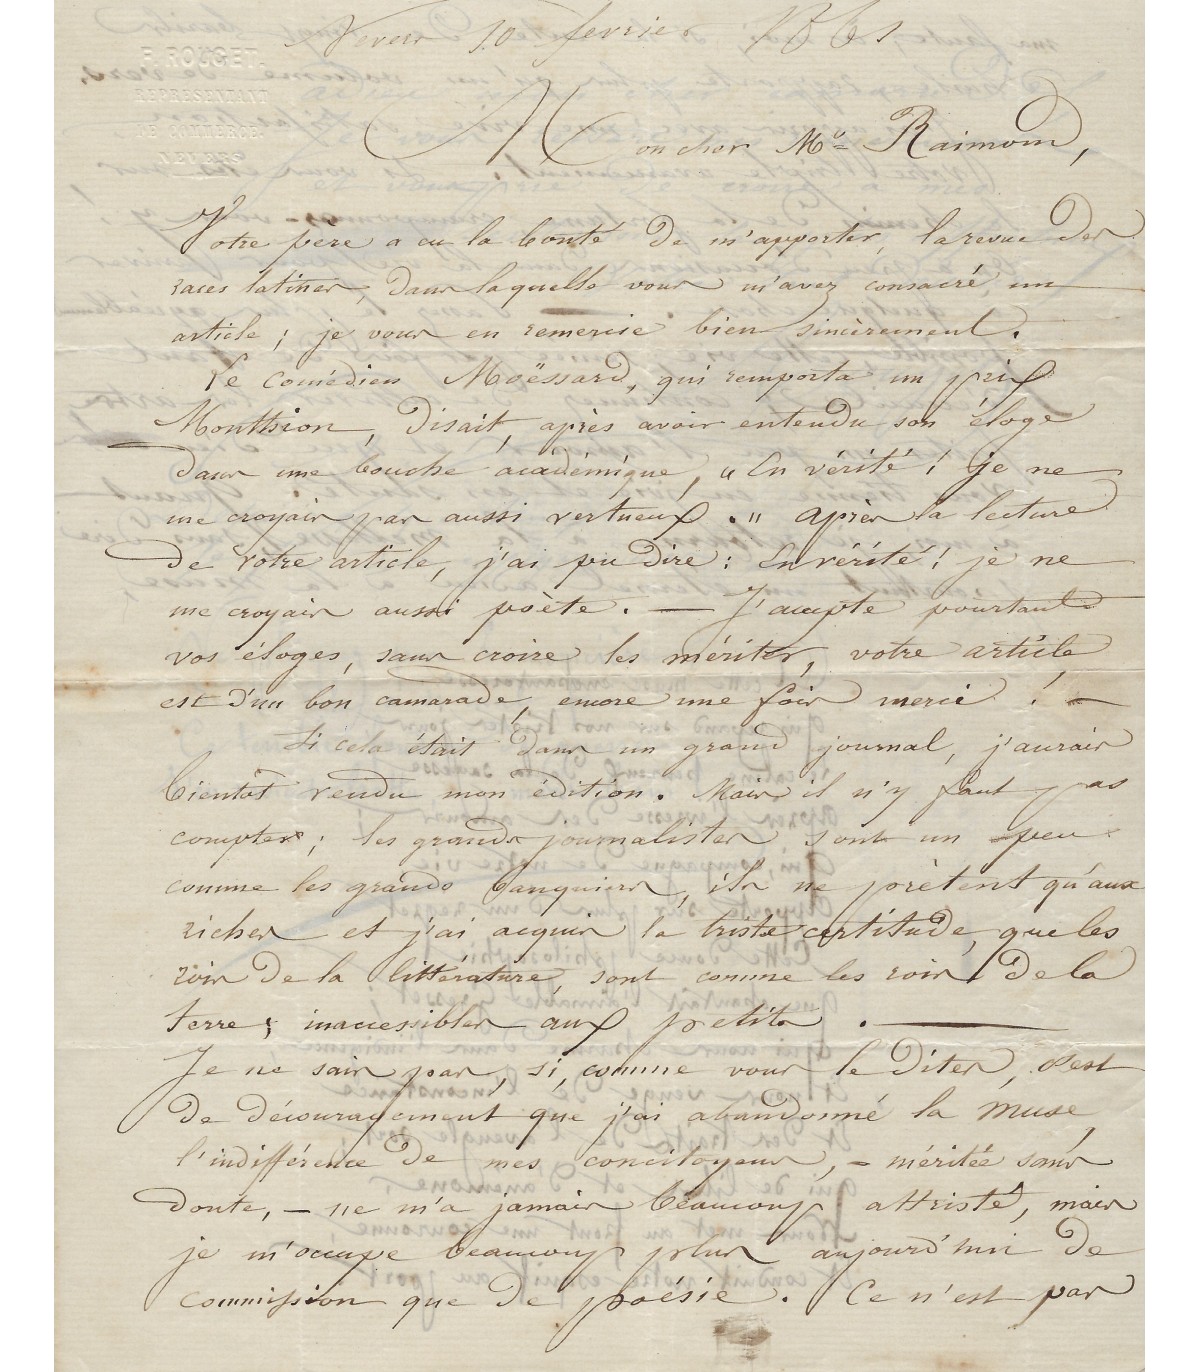 F. ROUGET.
REPRESENTANT
DE COMMERCE.
NEVERS
Nevers 10 février 1861
Mon cher Mr Raimond,
Votre père a eu la bonté de m'apporter, la revue des
races latines, dans laquelle vous m'avez consacré, un
article ; je vous en remercie bien sincèrement.
Le comédien Moëssard, qui remporta un prix
Monthion, disait, après avoir entendu son éloge
dans une bouche académique, " En vérité ! je ne
me croyais pas aussi vertueux . " Après la lecture
de votre article, j'ai pu dire : En vérité ! je ne
me croyais aussi poète . — J'accepte pourtant
vos éloges, sans croire les mériter, votre article
est d'un bon camarade, encore une fois merci ! —
Si cela était dans un grand journal, j'aurais
bientôt vendu mon édition . Mais il n'y faut pas
compter ; les grands journalistes sont un peu
comme les grands banquiers, ils ne prètent qu'aux
riches et j'ai acquis la triste certitude, que les
rois de la littérature, sont comme les rois de la
terre ; inaccessibles aux petits . —
Je ne sais pas, si, comme vous le dites, c'est
de découragement que j'ai abandonné la muse
l'indifférence de mes concitoyens, — méritée sans
doute, — ne m'a jamais beaucoup attristé, mais
je m'occupe beaucoup plus aujourd'hui de
commission que de poésie . Ce n'est pas